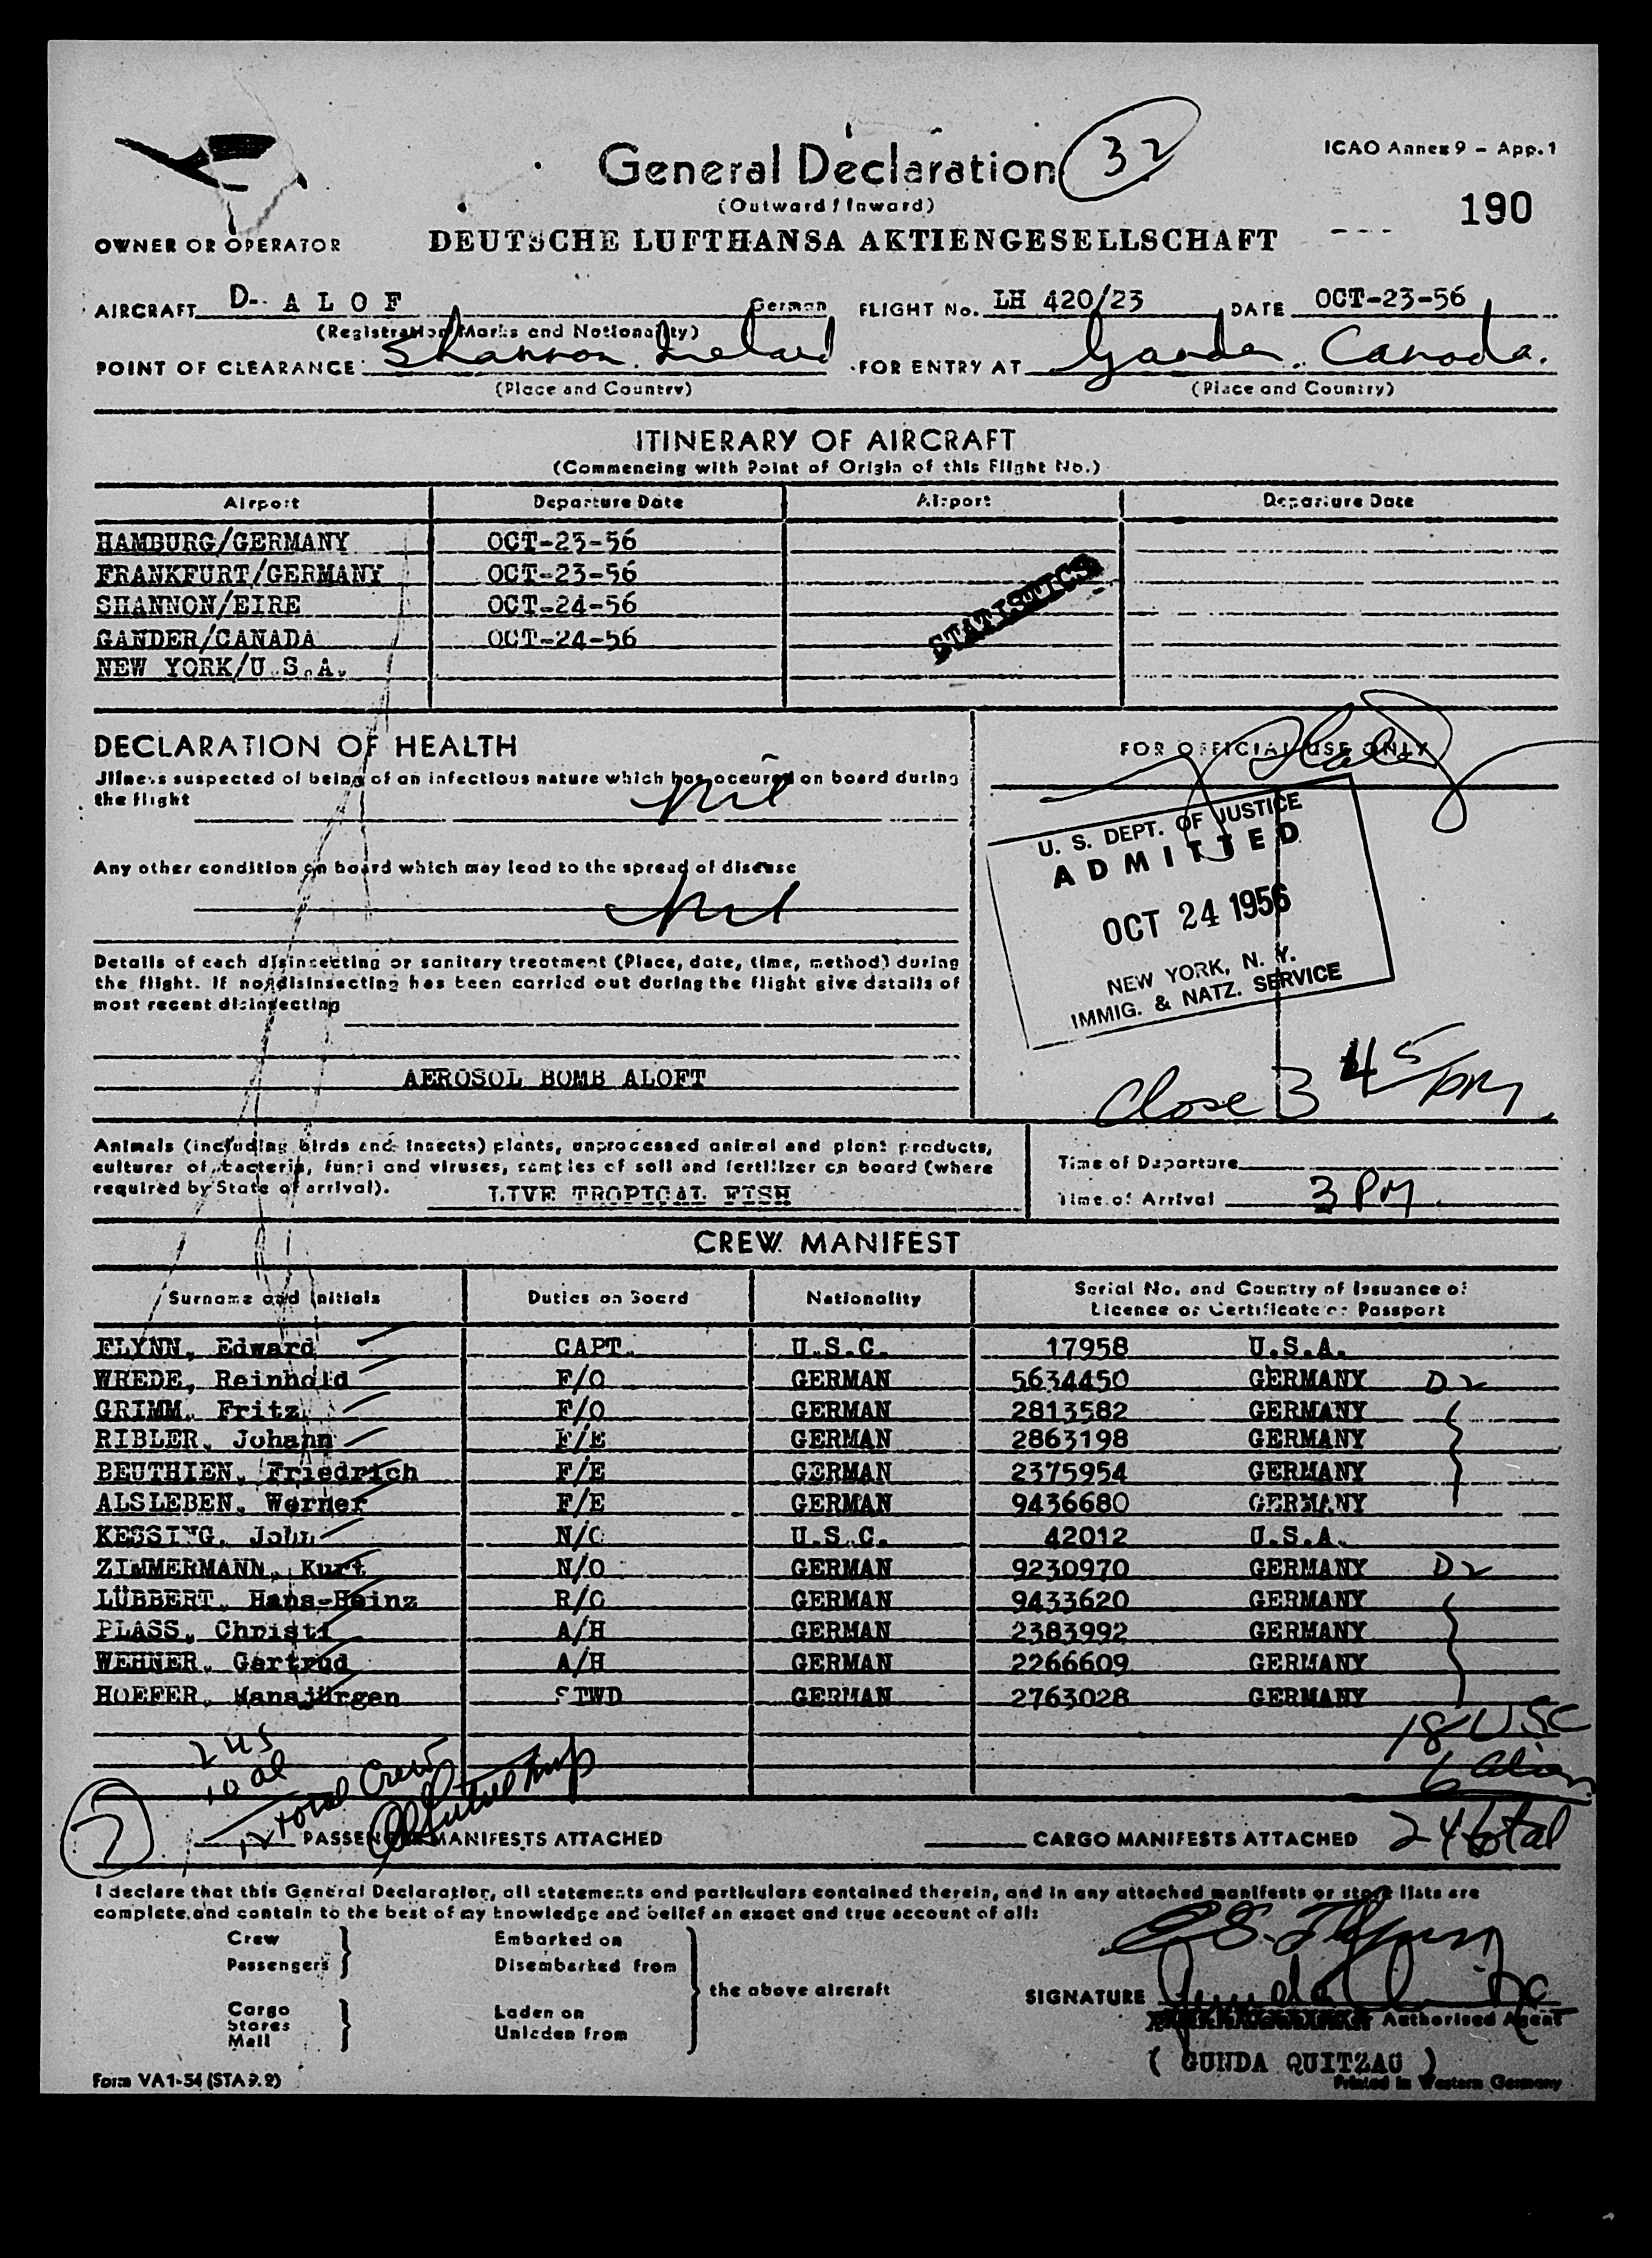 General Declaration
32
ICAO Annex 9 - App. 1
(Outward / Inward)
190
OWNER OR OPERATOR
DEUTSCHE LUFTHANSA AKTIENGESELLSCHAFT
AIRCRAFT D- A L O F German FLIGHT No. LH 420/23 DATE OCT-23-56
(Registration Marks and Nationality)
POINT OF CLEARANCE Shannon Ireland FOR ENTRY AT Gander Canada.
(Place and Country) (Place and Country)
ITINERARY OF AIRCRAFT
(Commencing with Point of Origin of this Flight No.)
Airport Departure Date Airport Departure Date
HAMBURG/GERMANY OCT-23-56
FRANKFURT/GERMANY OCT-23-56
SHANNON/EIRE OCT-24-56
GANDER/CANADA OCT-24-56
NEW YORK/U.S.A.
STATISTICS
DECLARATION OF HEALTH
FOR OFFICIAL USE ONLY
Illness suspected of being of an infectious nature which has occured on board during
the flight
nil
Any other condition on board which may lead to the spread of disease
nil
U. S. DEPT. OF JUSTICE
ADMITTED
OCT 24 1956
NEW YORK, N. Y.
IMMIG. & NATZ. SERVICE
Details of each disinsecting or sanitary treatment (Place, date, time, method) during
the flight. If no disinsecting has been carried out during the flight give details of
most recent disinsecting
AEROSOL BOMB ALOFT
Close 3 45 PM
Animals (including birds and insects) plants, unprocessed animal and plant products,
cultures of bacteria, fungi and viruses, samples of soil and fertilizer on board (where
required by State of arrival). LIVE TROPICAL FISH
Time of Departure
Time of Arrival 3 PM
CREW MANIFEST
Surname and Initials Duties on Board Nationality Serial No. and Country of Issuance of
Licence or Certificate or Passport
FLYNN, Edward CAPT. U.S.C. 17958 U.S.A.
WREDE, Reinhold F/O GERMAN 5634450 GERMANY D2
GRIMM, Fritz F/O GERMAN 2813582 GERMANY
RIBLER, Johann F/E GERMAN 2863198 GERMANY
BEUTHIEN, Friedrich F/E GERMAN 2375954 GERMANY
ALSLEBEN, Werner F/E GERMAN 9436680 GERMANY
KESSING, John N/O U.S.C. 42012 U.S.A.
ZIMMERMANN, Kurt N/O GERMAN 9230970 GERMANY D2
LÜBBERT, Hans-Heinz R/O GERMAN 9433620 GERMANY
PLASS, Christi A/H GERMAN 2383992 GERMANY
WEHNER, Gertrud A/H GERMAN 2266609 GERMANY
HOEFER, Hansjürgen STWD GERMAN 2763028 GERMANY
2 US
10 al
12 total Crew
18 USC
6 alien
24 total
PASSENGER MANIFESTS ATTACHED
CARGO MANIFESTS ATTACHED
I declare that this General Declaration, all statements and particulars contained therein, and in any attached manifests or store lists are
complete, and contain to the best of my knowledge and belief an exact and true account of all:
Crew Embarked on
Passengers Disembarked from
the above aircraft
Cargo Laden on
Stores
Mail Unladen from
SIGNATURE
Authorised Agent
( GUNDA QUITZAU )
Form VA1-54 (STA 9.2)
Printed in Western Germany